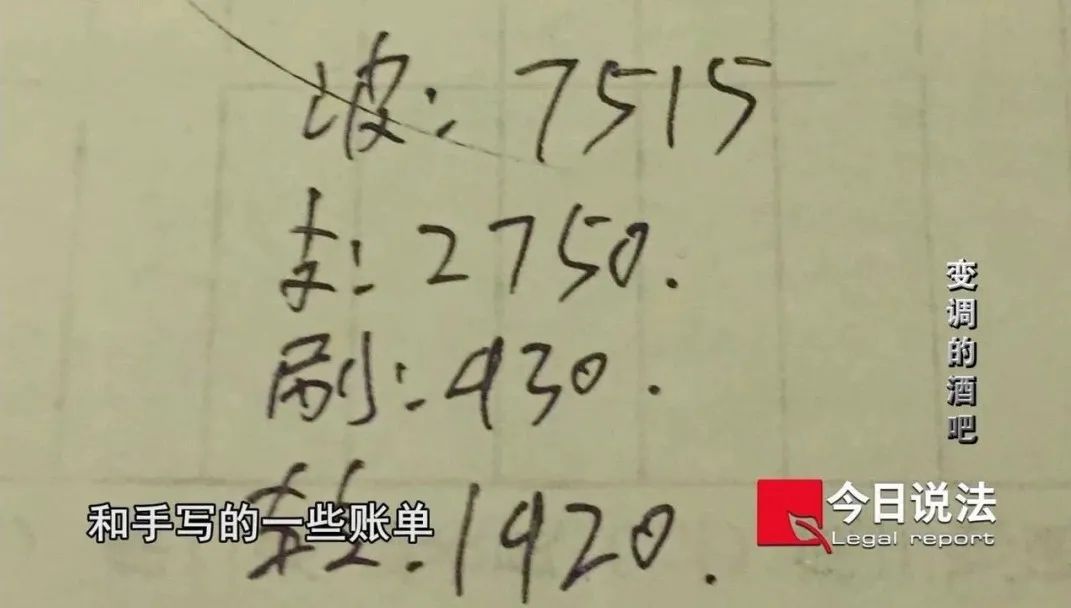 波: 7515
支: 2750.
刷: 430.
1920.
和手写的一些账单
变调的酒吧
今日说法
Legal report